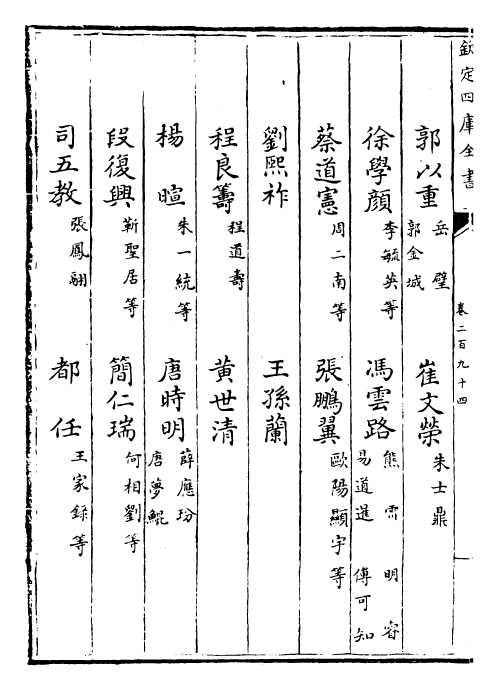 欽定四庫全書
卷二百九十四
郭以重
岳璧
郭金城
崔文榮
朱士鼎
徐學顏
李毓英等
馮雲路
熊䨏 明睿
易道暹 傅可知
蔡道憲
周二南等
張鵬翼
歐陽顯宇等
劉熙祚
王孫蘭
程良籌
程道壽
黃世清
楊暄
朱一統等
唐時明
薛應玢
唐夢鯤
段復興
靳聖居等
簡仁瑞
何相劉等
司五教
張鳳翮
都任
王家錄等